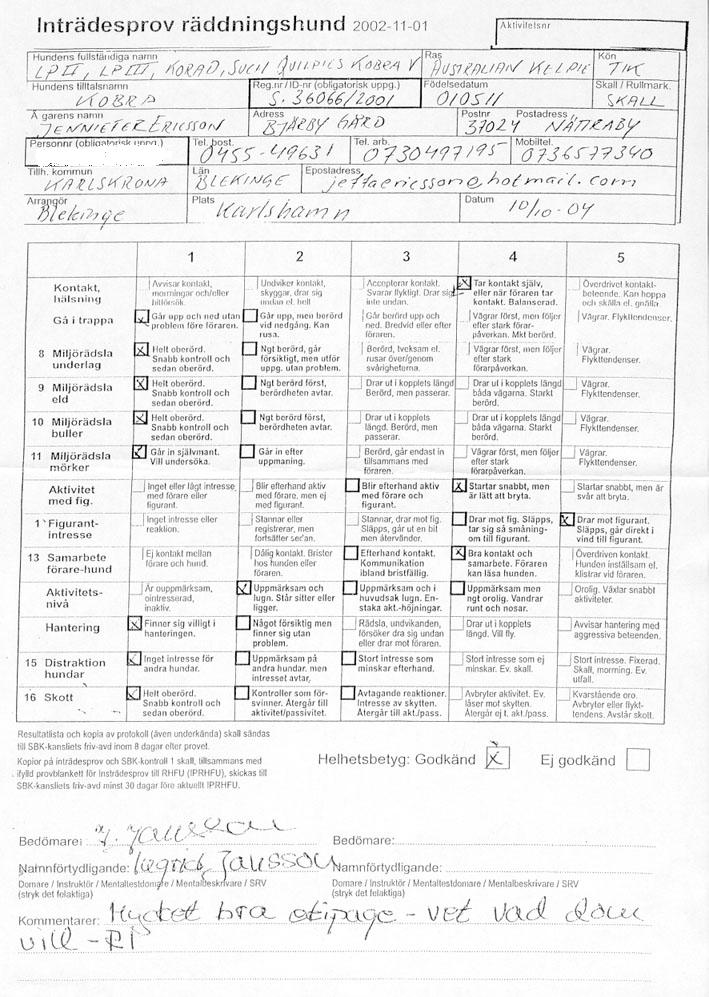 Inträdesprov räddningshund 2002-11-01
Aktivitetsnr
Hundens fullständiga namn
LPII, LPIII, KORAD, SUCH QUILPIES KOBRA V
Ras
AUSTRALIAN KELPIE
Kön
TIK
Hundens tilltalsnamn
KOBRA
Reg.nr / ID-nr (obligatorisk uppg.)
S. 36066/2001
Födelsedatum
010511
Skall / Rullmark.
SKALL
Ägarens namn
JENNIETER ERICSSON
Adress
BJÄRBY GÅRD
Postnr
37024
Postadress
NÄTTRABY
Personnr (obligatorisk uppg.)
Tel. bost.
0455-49631
Tel. arb.
0730497195
Mobiltel.
0736577340
Tillh. kommun
KARLSKRONA
Län
BLEKINGE
Epostadress
jettaericsson@hotmail.com
Arrangör
Blekinge
Plats
Karlshamn
Datum
10/10-04
1 2 3 4 5
Kontakt, hälsning
Avvisar kontakt, morrningar och/eller bitförsök.
Undviker kontakt, skyggar, drar sig undan el. hell
Accepterar kontakt. Svarar flyktigt. Drar sig inte undan.
x Tar kontakt själv, eller när föraren tar kontakt. Balanserad.
Överdrivet kontakt-beteende. Kan hoppa och skälla el. gnälla.
Gå i trappa
x Går upp och ned utan problem före föraren.
Går upp, men berörd vid nedgång. Kan rusa.
Går berörd upp och ned. Bredvid eller efter föraren.
Vägrar först, men följer efter stark förar-påverkan. Mkt berörd.
Vägrar. Flykttendenser.
8 Miljörädsla underlag
x Helt oberörd. Snabb kontroll och sedan oberörd.
Ngt berörd, går försiktigt, men utför uppg. utan problem.
Berörd, tveksam el. rusar över/genom svårigheterna.
Vägrar först, men följer efter stark förarpåverkan.
Vägrar. Flykttendenser.
9 Miljörädsla eld
x Helt oberörd. Snabb kontroll och sedan oberörd.
Ngt berörd först, berördheten avtar.
Drar ut i kopplets längd Berörd, men passerar.
Drar ut i kopplets längd båda vägarna. Starkt berörd.
Vägrar. Flykttendenser.
10 Miljörädsla buller
x Helt oberörd. Snabb kontroll och sedan oberörd.
Ngt berörd först, berördheten avtar.
Drar ut i kopplets längd. Berörd, men passerar.
Drar ut i kopplets längd båda vägarna. Starkt berörd.
Vägrar. Flykttendenser.
11 Miljörädsla mörker
x Går in självmant. Vill undersöka.
Går in efter uppmaning.
Berörd, går endast in tillsammans med föraren.
Vägrar först, men följer efter stark förarpåverkan.
Vägrar. Flykttendenser.
Aktivitet med fig.
Inget eller lågt intresse med förare eller figurant.
Blir efterhand aktiv med förare, men ej med figurant.
Blir efterhand aktiv med förare och figurant.
x Startar snabbt, men är lätt att bryta.
Startar snabbt, men är svår att bryta.
1 Figurant-intresse
Inget intresse eller reaktion.
Stannar eller registrerar, men fortsätter sedan.
Stannar, drar mot fig. Släpps, går ut en bit men återvänder.
Drar mot fig. Släpps, tar sig så småning-om till figurant.
x Drar mot figurant. Släpps, går direkt i vind till figurant.
13 Samarbete förare-hund
Ej kontakt mellan förare och hund.
Dålig kontakt. Brister hos hunden eller föraren.
Efterhand kontakt. Kommunikation ibland bristfällig.
x Bra kontakt och samarbete. Föraren kan läsa hunden.
Överdriven kontakt. Hunden inställsam el. klistrar vid föraren.
Aktivitets-nivå
Är ouppmärksam, ointresserad, inaktiv.
x Uppmärksam och lugn. Står sitter eller ligger.
Uppmärksam och i huvudsak lugn. En-staka akt.-höjningar.
Uppmärksam men ngt orolig. Vandrar runt och nosar.
Orolig. Växlar snabbt aktiviteter.
Hantering
x Finner sig villigt i hanteringen.
Något försiktig men finner sig utan problem.
Rädsla, undvikanden, försöker dra sig undan eller drar mot föraren.
Drar ut i kopplets längd. Vill fly.
Avvisar hantering med aggressiva beteenden.
15 Distraktion hundar
x Inget intresse för andra hundar.
Uppmärksam på andra hundar. men intresset avtar.
Stort intresse som minskar efterhand.
Stort intresse som ej minskar. Ev. skall.
Stort intresse. Fixerad. Skall, morrning. Ev. utfall.
16 Skott
x Helt oberörd. Snabb kontroll och sedan oberörd.
Kontroller som för-svinner. Återgår till aktivitet/passivitet.
Avtagande reaktioner. Intresse av skytten. Återgår till akt./pass.
Avbryter aktivitet. Ev. låser mot skytten. Återgår ej t. akt./pass.
Kvarstående oro. Avbryter eller flykt-tendens. Avstår skott.
Resultatlista och kopia av protokoll (även underkända) skall sändas
till SBK-kansliets friv-avd inom 8 dagar efter provet.
Kopior på inträdesprov och SBK-kontroll 1 skall, tillsammans med
ifylld provblankett för Insträdesprov till RHFU (IPRHFU), skickas till
SBK-kansliets friv-avd minst 30 dagar före aktuellt IPRHFU.
Helhetsbetyg: Godkänd x Ej godkänd
Bedömare: I. Jansson Bedömare:
Namnförtydligande: Ingrid Jansson Namnförtydligande:
Domare / Instruktör / Mentaltestdomare / Mentalbeskrivare / SRV Domare / Instruktör / Mentaltestdomare / Mentalbeskrivare / SRV
(stryk det felaktiga) (stryk det felaktiga)
Kommentarer: Mycket bra ekipage - vet vad dom
vill -